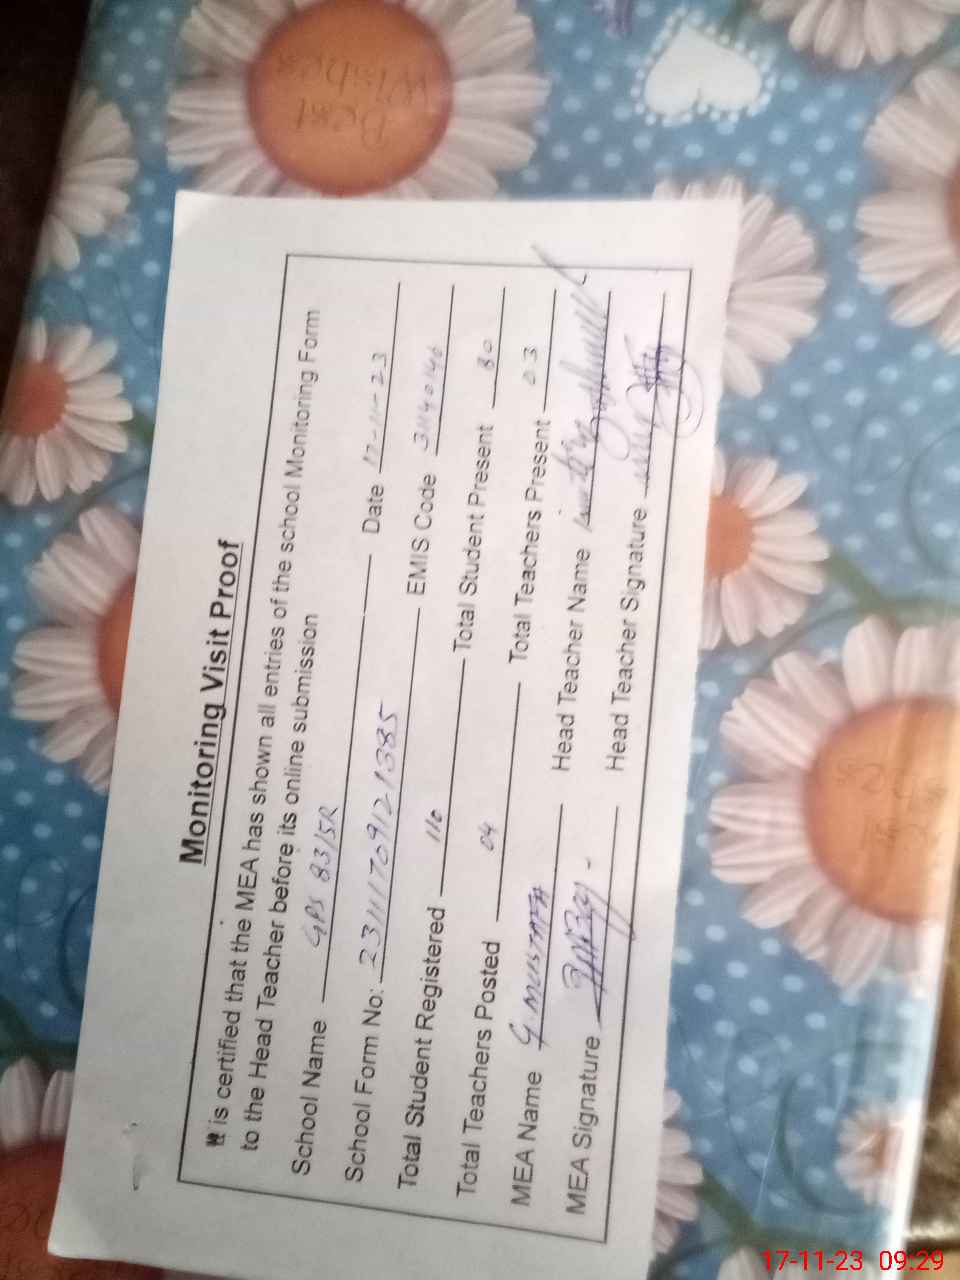 Monitoring Visit Proof
It is certified that the MEA has shown all entries of the school Monitoring Form
to the Head Teacher before its online submission
School Name GPS 83/5R Date 17-11-23
School Form No: 23111709121385 EMIS Code 31140146
Total Student Registered 110 Total Student Present 80
Total Teachers Posted 04 Total Teachers Present 03
MEA Name G. MUSTAFA Head Teacher Name
MEA Signature Head Teacher Signature
Best
Wishes
17-11-23 09:29